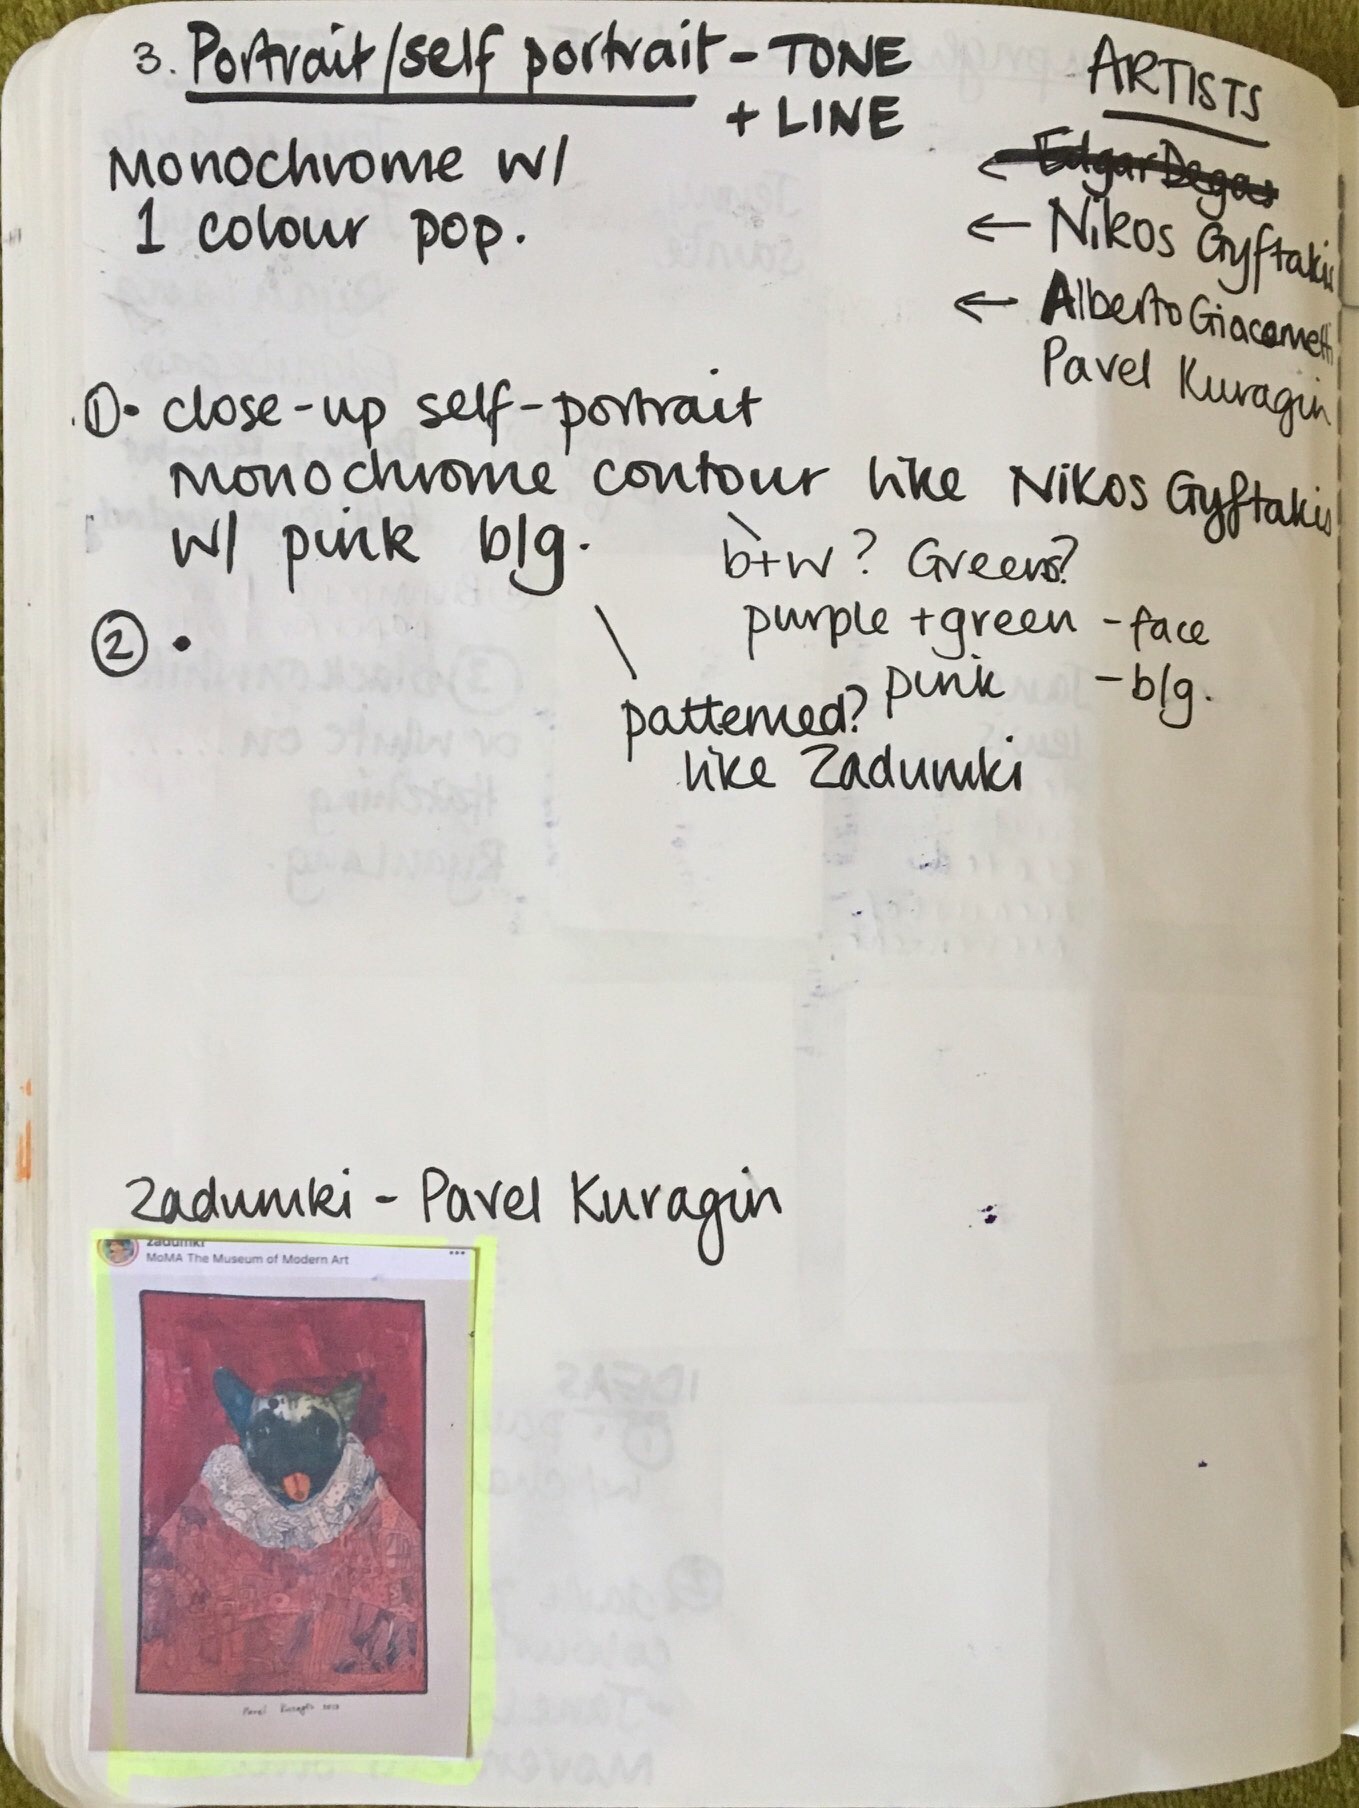 3. Portrait/self portrait - TONE
+ LINE
Monochrome w/
1 colour pop.
ARTISTS
← Edgar Degas
← Nikos Gyftakis
← Alberto Giacometti
Pavel Kuragin
① • close-up self-portrait
monochrome contour like Nikos Gyftakis
w/ pink b/g.
b+w? Greens?
purple + green - face
pink - b/g.
② •
patterned?
like Zadumki
Zadumki - Pavel Kuragin
zadumki
MoMA The Museum of Modern Art